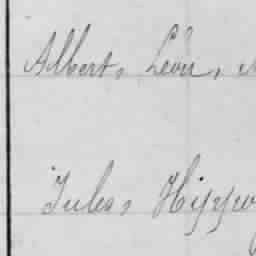 Albert, Léon,
Jules, Hippo